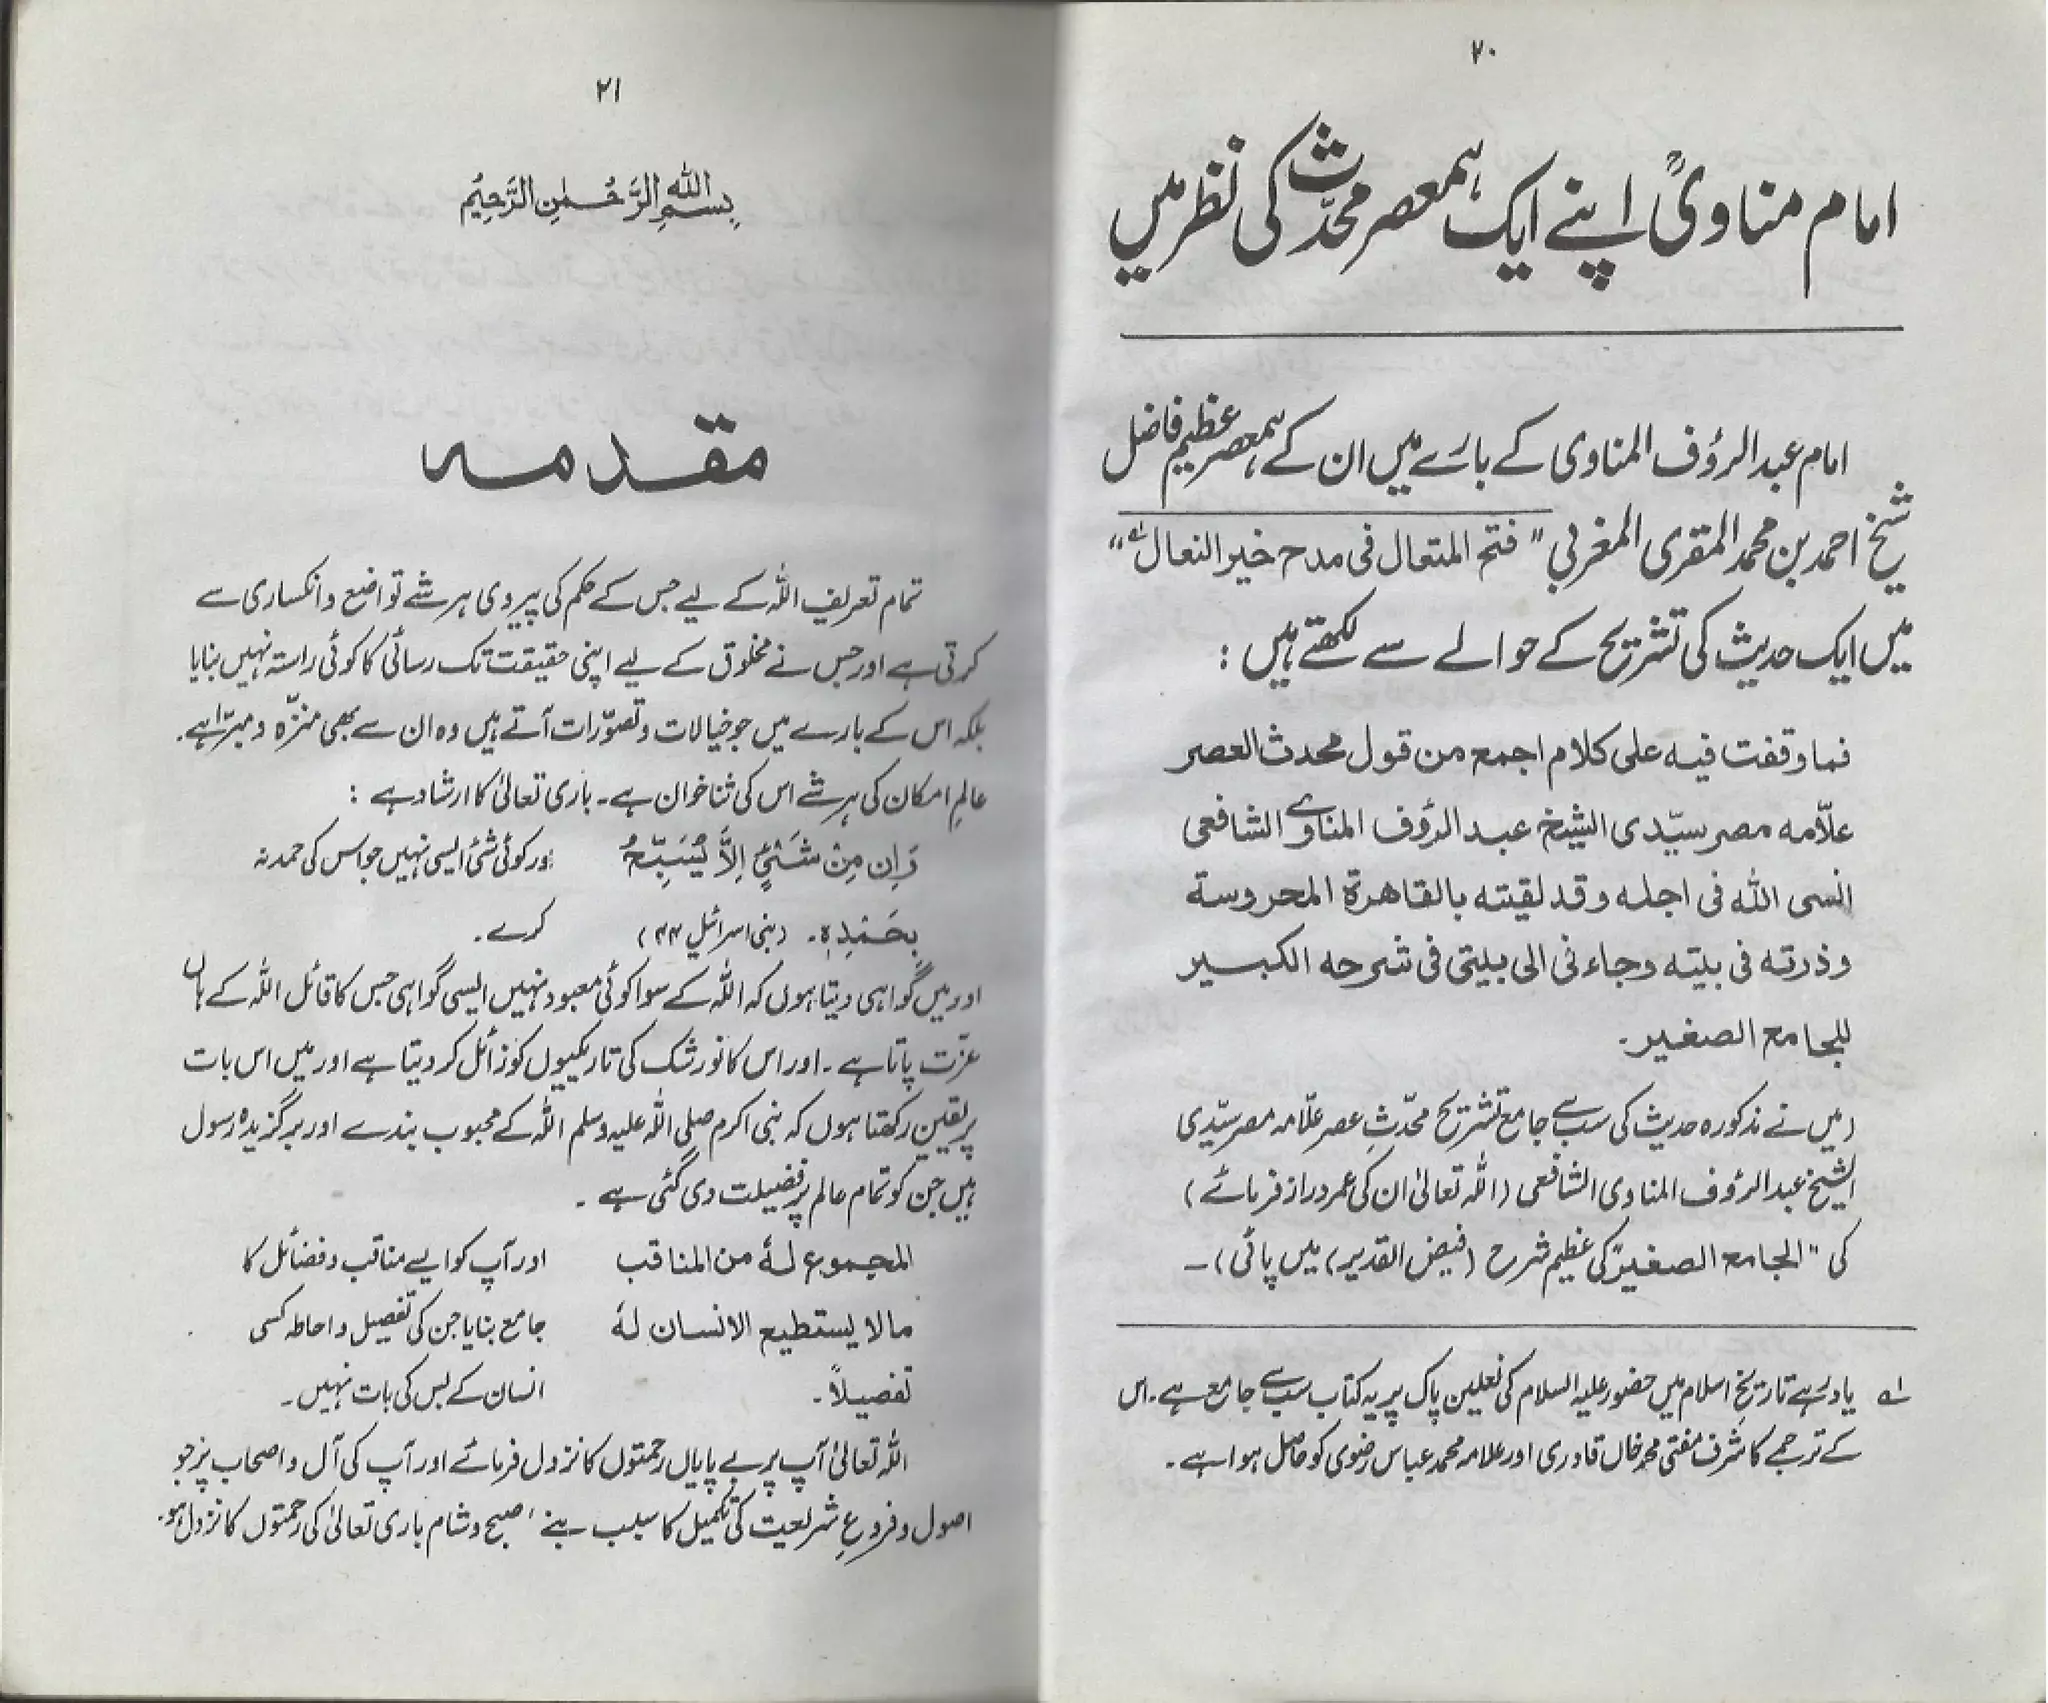 ۲۰
امام مناویؒ اپنے ایک ہمعصر محدّث کی نظر میں
امام عبدالرؤف المناوی کے بارے میں ان کے ہمعصر عظیم فاضل
شیخ احمد بن محمد المقری المغربی "فتح المتعال فی مدح خیر النعال" لہ
میں ایک حدیث کی تشریح کے حوالے سے لکھتے ہیں :
فما وقفت فیہ علی کلام اجمع من قول محدث العصر
علّامہ مصر سیّدی الشیخ عبد الرؤف المناوی الشافعی
انسی اللہ فی اجلہ وقد لقیتہ بالقاھرۃ المحروسۃ
وذرتہ فی بیتہ وجاءنی الی بیتی فی شرحہ الکبیر
للجامع الصغیر۔
(میں نے مذکورہ حدیث کی سب سے جامع تشریح محدّثِ عصر علّامہ مصر سیّدی
الشیخ عبدالرؤف المناوی الشافعی (اللہ تعالیٰ ان کی عمر دراز فرمائے)
کی "الجامع الصغیر" کی عظیم شرح (فیض القدیر) میں پائی)۔
لہ یاد رہے تاریخِ اسلام میں حضور علیہ السلام کی نعلین پاک پر یہ کتاب سب سے جامع ہے۔ اس
کے ترجمے کا شرف مفتی محمد خاں قادری اور علامہ محمد عباس رضوی کو حاصل ہوا ہے۔
۲۱
بِسْمِ اللہِ الرَّحْمٰنِ الرَّحِیْمِ
مقدمہ
تمام تعریف اللہ کے لیے جس کے حکم کی پیروی ہر شے تواضع و انکساری سے
کرتی ہے اور جس نے مخلوق کے لیے اپنی حقیقت تک رسائی کا کوئی راستہ نہیں بنایا
بلکہ اس کے بارے میں جو خیالات و تصوّرات آتے ہیں وہ ان سے بھی منزّہ و مبرّا ہے۔
عالمِ امکان کی ہر شے اس کی ثنا خوان ہے۔ باری تعالیٰ کا ارشاد ہے :
وَاِن مِنْ شَیْئٍ اِلاَّ یُسَبِّحُ اور کوئی شئ ایسی نہیں جو اس کی حمد نہ
بِحَمْدِہٖ۔ (بنی اسرائیل ۴۴) کرے۔
اور میں گواہی دیتا ہوں کہ اللہ کے سوا کوئی معبود نہیں ایسی گواہی جس کا قائل اللہ کے ہاں
عزّت پاتا ہے۔ اور اس کا نور شک کی تاریکیوں کو زائل کر دیتا ہے اور میں اس بات
پر یقین رکھتا ہوں کہ نبی اکرم صلی اللہ علیہ وسلم اللہ کے محبوب بندے اور برگزیدہ رسول
ہیں جن کو تمام عالم پر فضیلت دی گئی ہے۔
المجموع لہٗ من المناقب اور آپ کو ایسے مناقب و فضائل کا
مالا یستطیع الانسان لہٗ جامع بنایا جن کی تفصیل و احاطہ کسی
تفصیلاً۔ انسان کے بس کی بات نہیں۔
اللہ تعالیٰ آپ پر بے پایاں رحمتوں کا نزول فرمائے اور آپ کی آل و اصحاب پر جو
اصول و فروعِ شریعت کی تکمیل کا سبب بنے، صبح و شام باری تعالیٰ کی رحمتوں کا نزول ہو۔